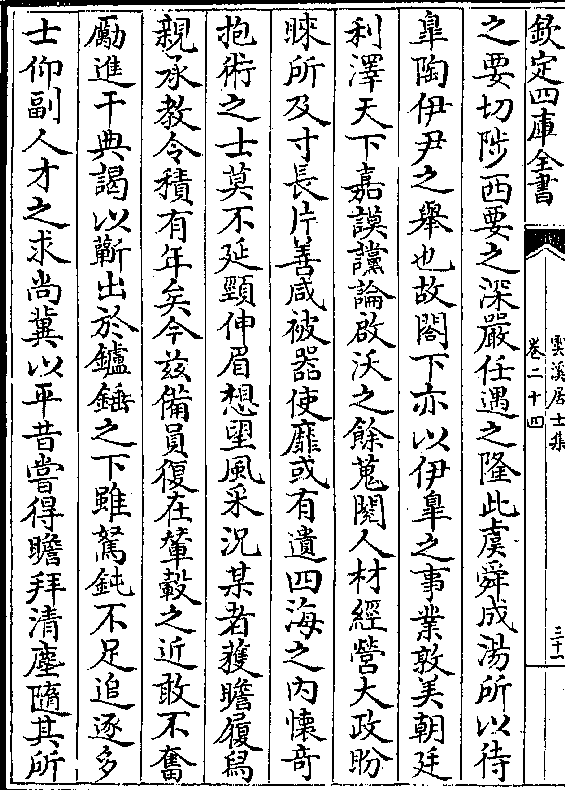 欽定四庫全書
雲溪居士集
卷二十四
三十一
之要切陟西要之深嚴任遇之隆此虞舜成湯所以待
臯陶伊尹之舉也故閤下亦以伊臯之事業敦美朝廷
利澤天下嘉謨讜論啟沃之餘蒐閱人材經營大政盼
睞所及寸長片善咸被器使靡或有遺四海之内懐竒
抱術之士莫不延頸伸眉想望風采況某者獲瞻履舄
親承教令積有年矣今兹備員復在輦轂之近敢不奮
勵進干典謁以蘄出於鑪錘之下雖駑鈍不足追逐多
士仰副人才之求尚冀以平昔嘗得瞻拜清塵隨其所